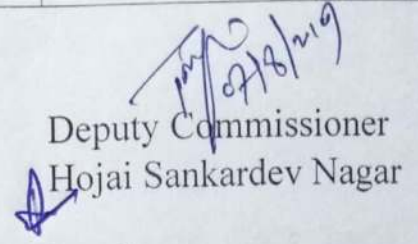 07/8/2019
Deputy Commissioner
Hojai Sankardev Nagar